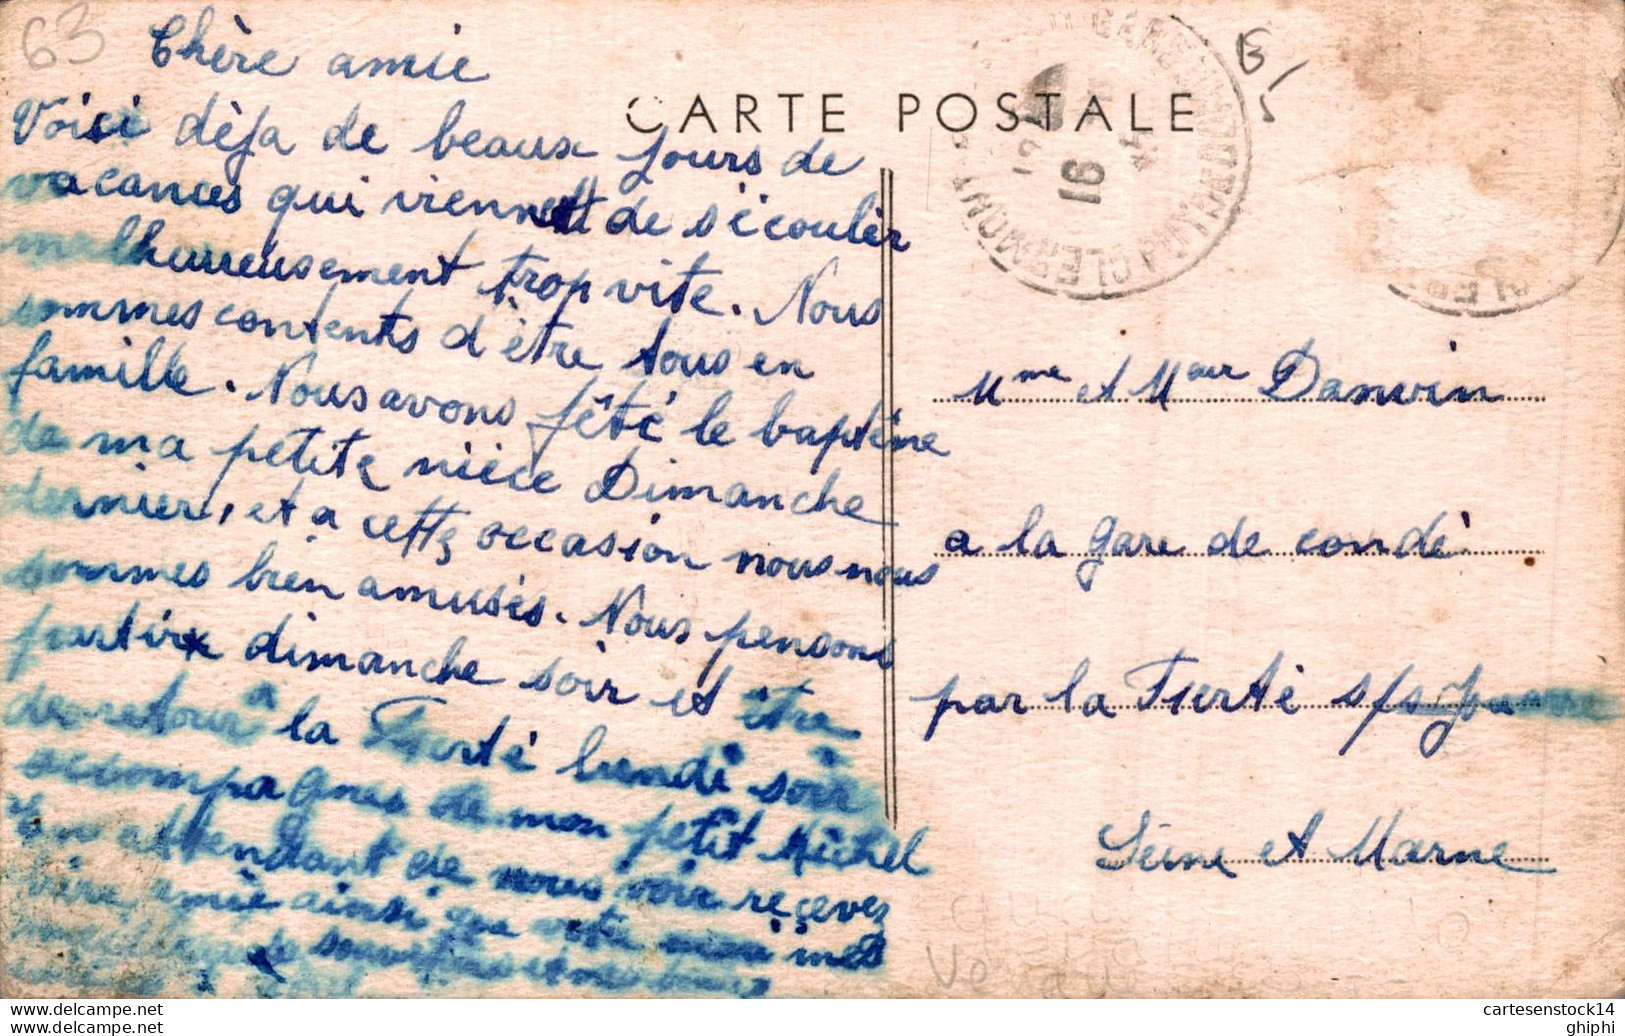 63
Chère amie
Voici dèja de beaux jours de
vacances qui viennent de s'écouler
malhureusement trop vite. Nous
sommes contents d'être tous en
famille. Nous avons fêté le baptême
de ma petite nièce Dimanche
dernier, et a cette occasion nous nous
sommes bien amusés. Nous pensons
partir dimanche soir et être
de retour a la Fierté lundi soir
accompagnés de mon petit Michel
En attendant de nous voir recevez
chère amie ainsi que votre
souvenirs et mes
CARTE POSTALE
16
Mme et Maur Danvin
a la gare de condé
par la Fierté s/s Jouarre
Seine et Marne
cartesenstock14
ghiphi